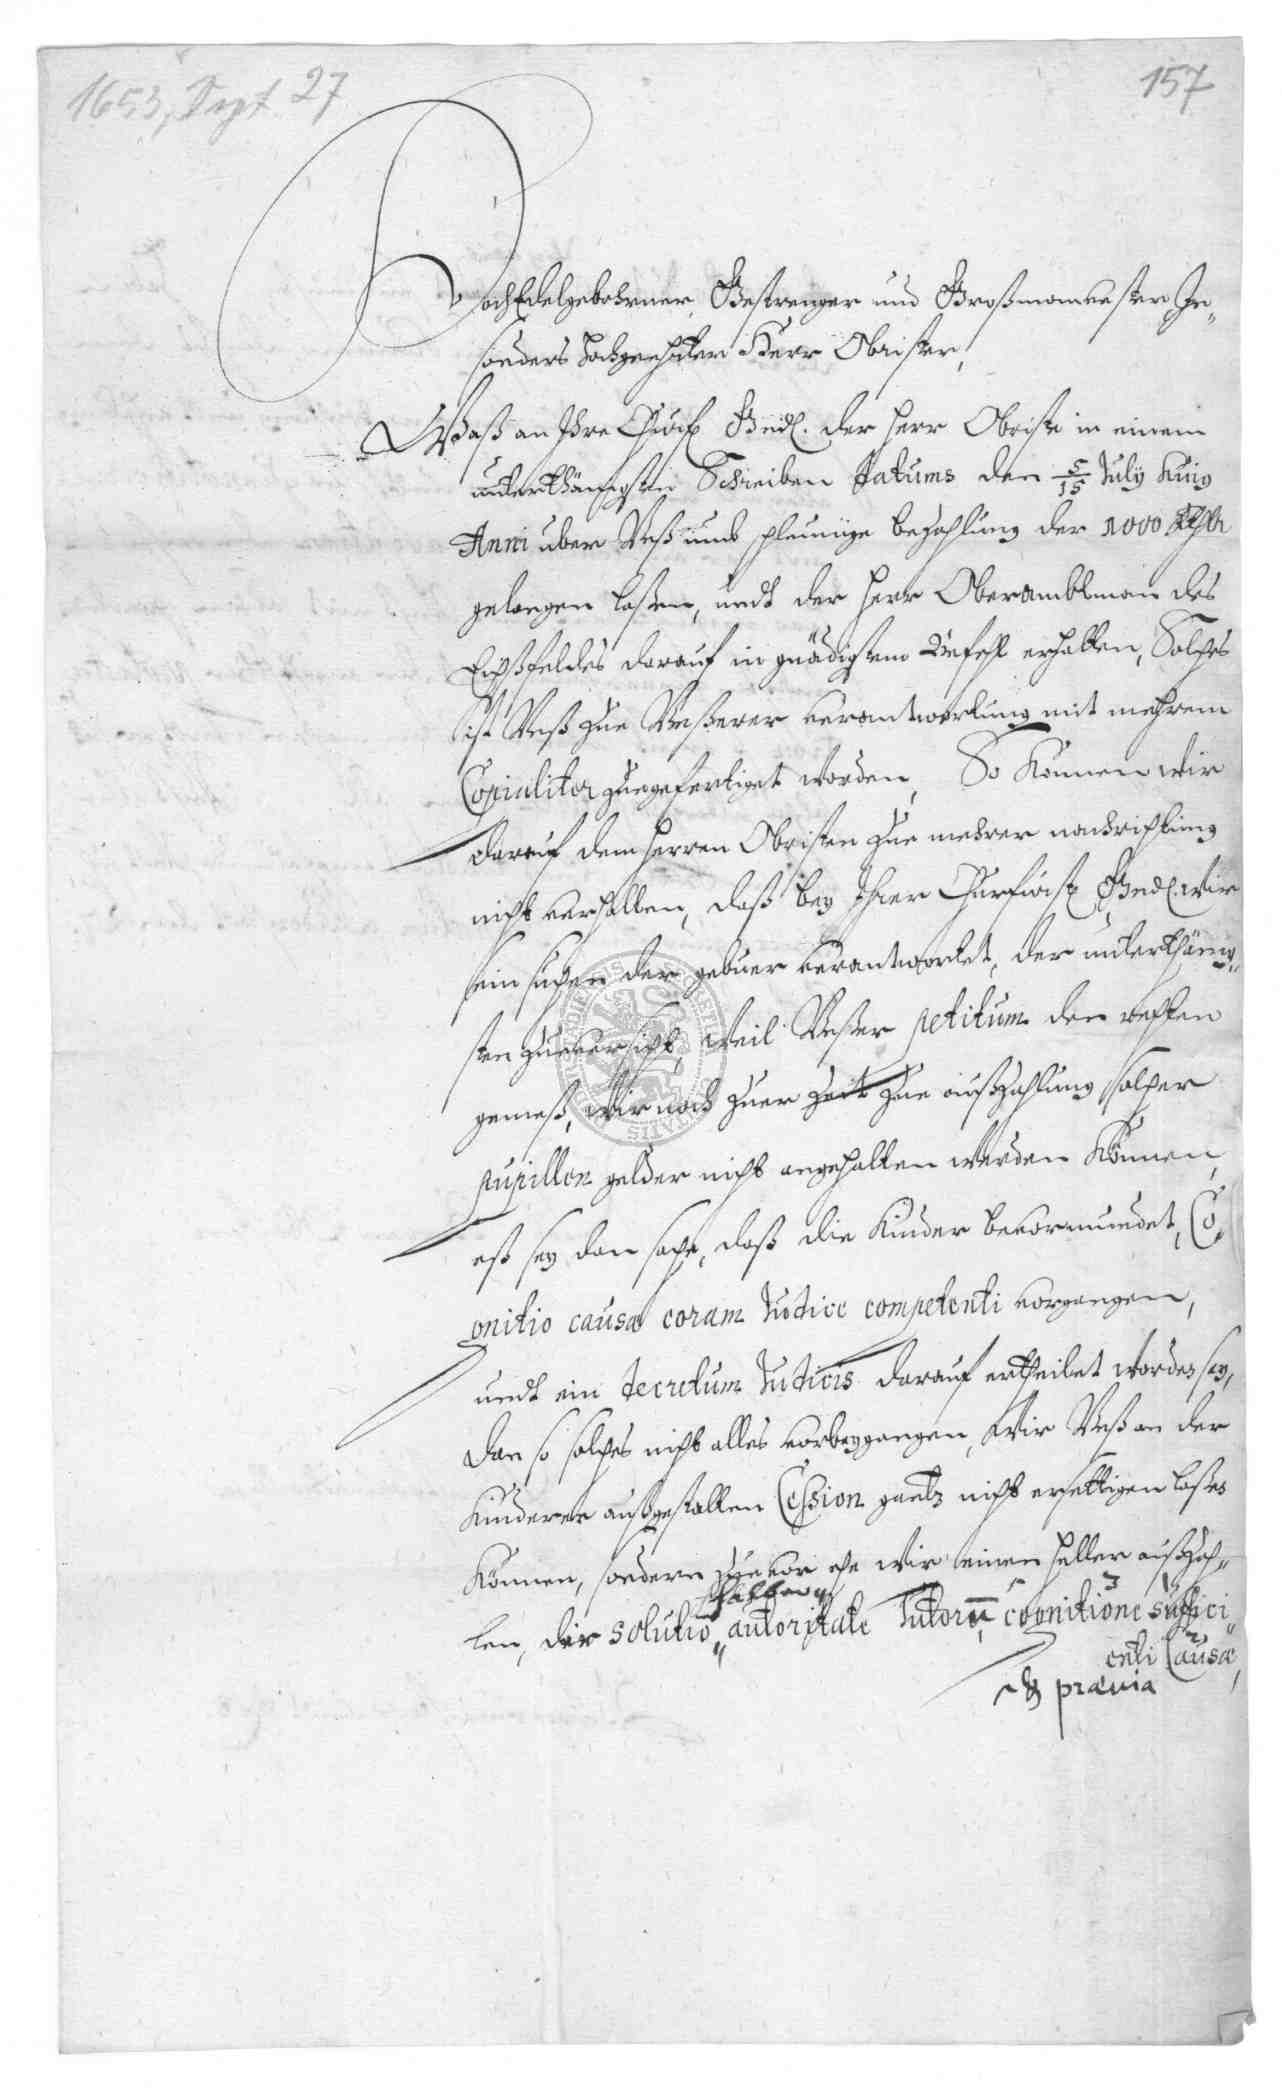 1653, Sept 27
157
HochEdelgebohrner, Gestrenger und Großmanvester, In-
sonders hochgeehrter Herr Obrister,
Waß an Ihre Churf. Gnd. der Herr Obriste in einem
unterthänigsten Schreiben datums den 5/15 July huig
Anni uber Unß umb schleunige bezahlung der 1000 Rthlr
gelangen laßen, undt der Herr Oberambtman des
Eichßfeldes darauf in gnädigstem Befehl erhalten, Solches
ist Unß zue Unßerer verantwortung mit mehrem
Copialiter zuegefertiget worden, So können wir
darauf dem Herren Obristen zue mehrer nachrichtung
nicht verhalten, daß bey Ihrer Churfürst. Gnd. wir
sein suchen der gebuer verantwortet, der unterthänig-
sten zueversicht, weil Unßer petitum den rechten
gemeß, wir noch zuer Zeit zue außzahlung solcher
pupillen gelder nicht angehalten werden können,
eß sey dan sache, daß die Kinder bevormundet, Co-
gnitio causæ coram Judice competenti vorgangen,
undt ein decretum Judicis darauf ertheilet worden sey,
dan so solches nicht alles vorbeygangen, wir Unß an der
Kinderen außgestalten Cession gantz nicht ersettigen laßen
können, sondern zuevor ehe wir einen heller außzah-
len, die solutio autoritate Tutorum, cognitione suffici-
enti Causæ,
& prævia